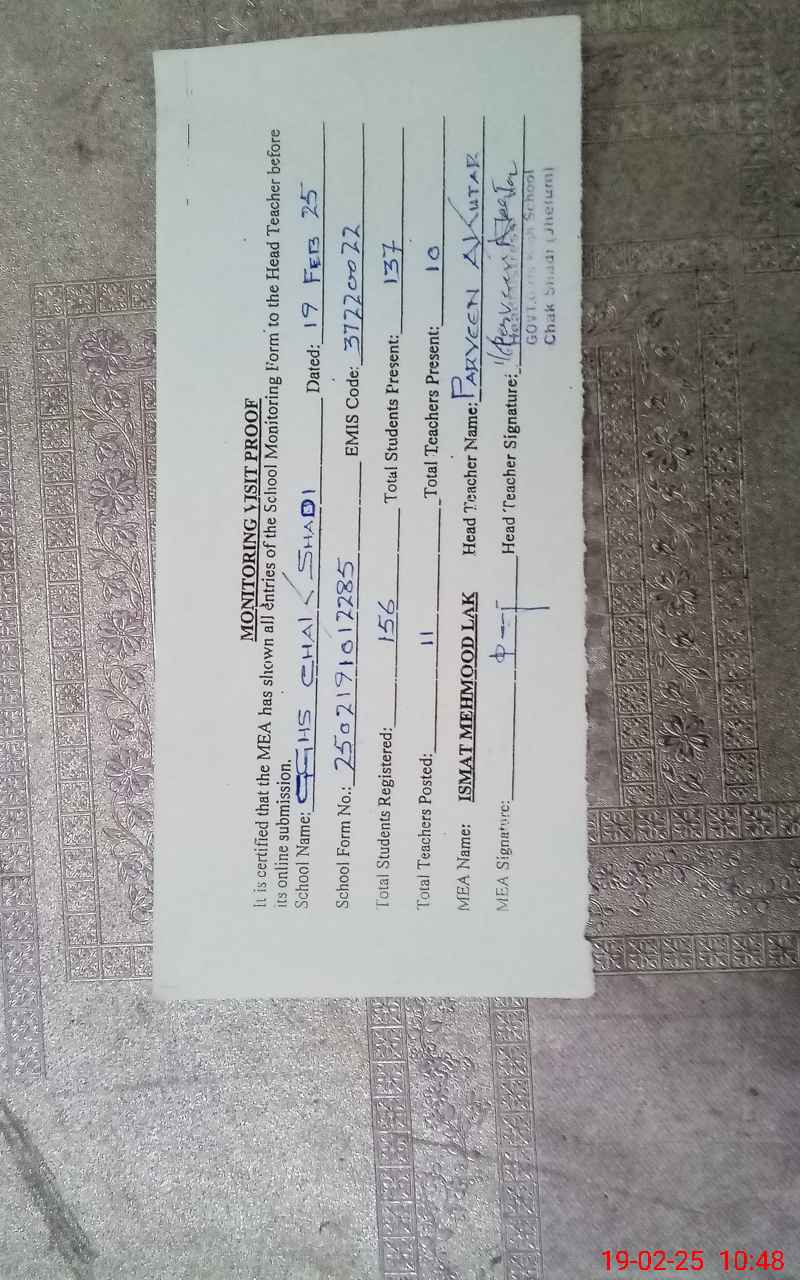 MONITORING VISIT PROOF
It is certified that the MEA has shown all entries of the School Monitoring Form to the Head Teacher before
its online submission.
School Name: GGHS CHAK SHADI Dated: 19 FEB 25
School Form No.: 2502191012285 EMIS Code: 37220022
Total Students Registered: 156 Total Students Present: 137
Total Teachers Posted: 11 Total Teachers Present: 10
MEA Name: ISMAT MEHMOOD LAK Head Teacher Name: PARVEEN AKHTAR
MEA Signature: Head Teacher Signature: Perveen Akhtar
GOVT. High School
Chak Shadi (Jhelum)
19-02-25 10:48